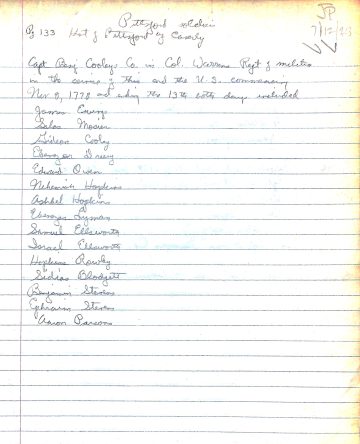 Pittsford soldiers
Pg 133 Hist of Pittsford by Caverly
JP
7/12/23
Capt Benj Cooleys Co. in Col. Warrens Regt of militia
in the service of this and the U.S. commencing
Nov 8, 1778 and ending the 13th both days included
James Ewing
Silas Mosier
Gideon Cooley
Ebenezer Drury
Edward Owen
Nehemiah Hopkins
Ashbel Hopkins
Ebenezer Lyman
Samuel Ellsworth
Israel Ellsworth
Hopkins Rowley
Sidias Blodgett
Benjamin Stevens
Ephraim Stevens
Aaron Parsons